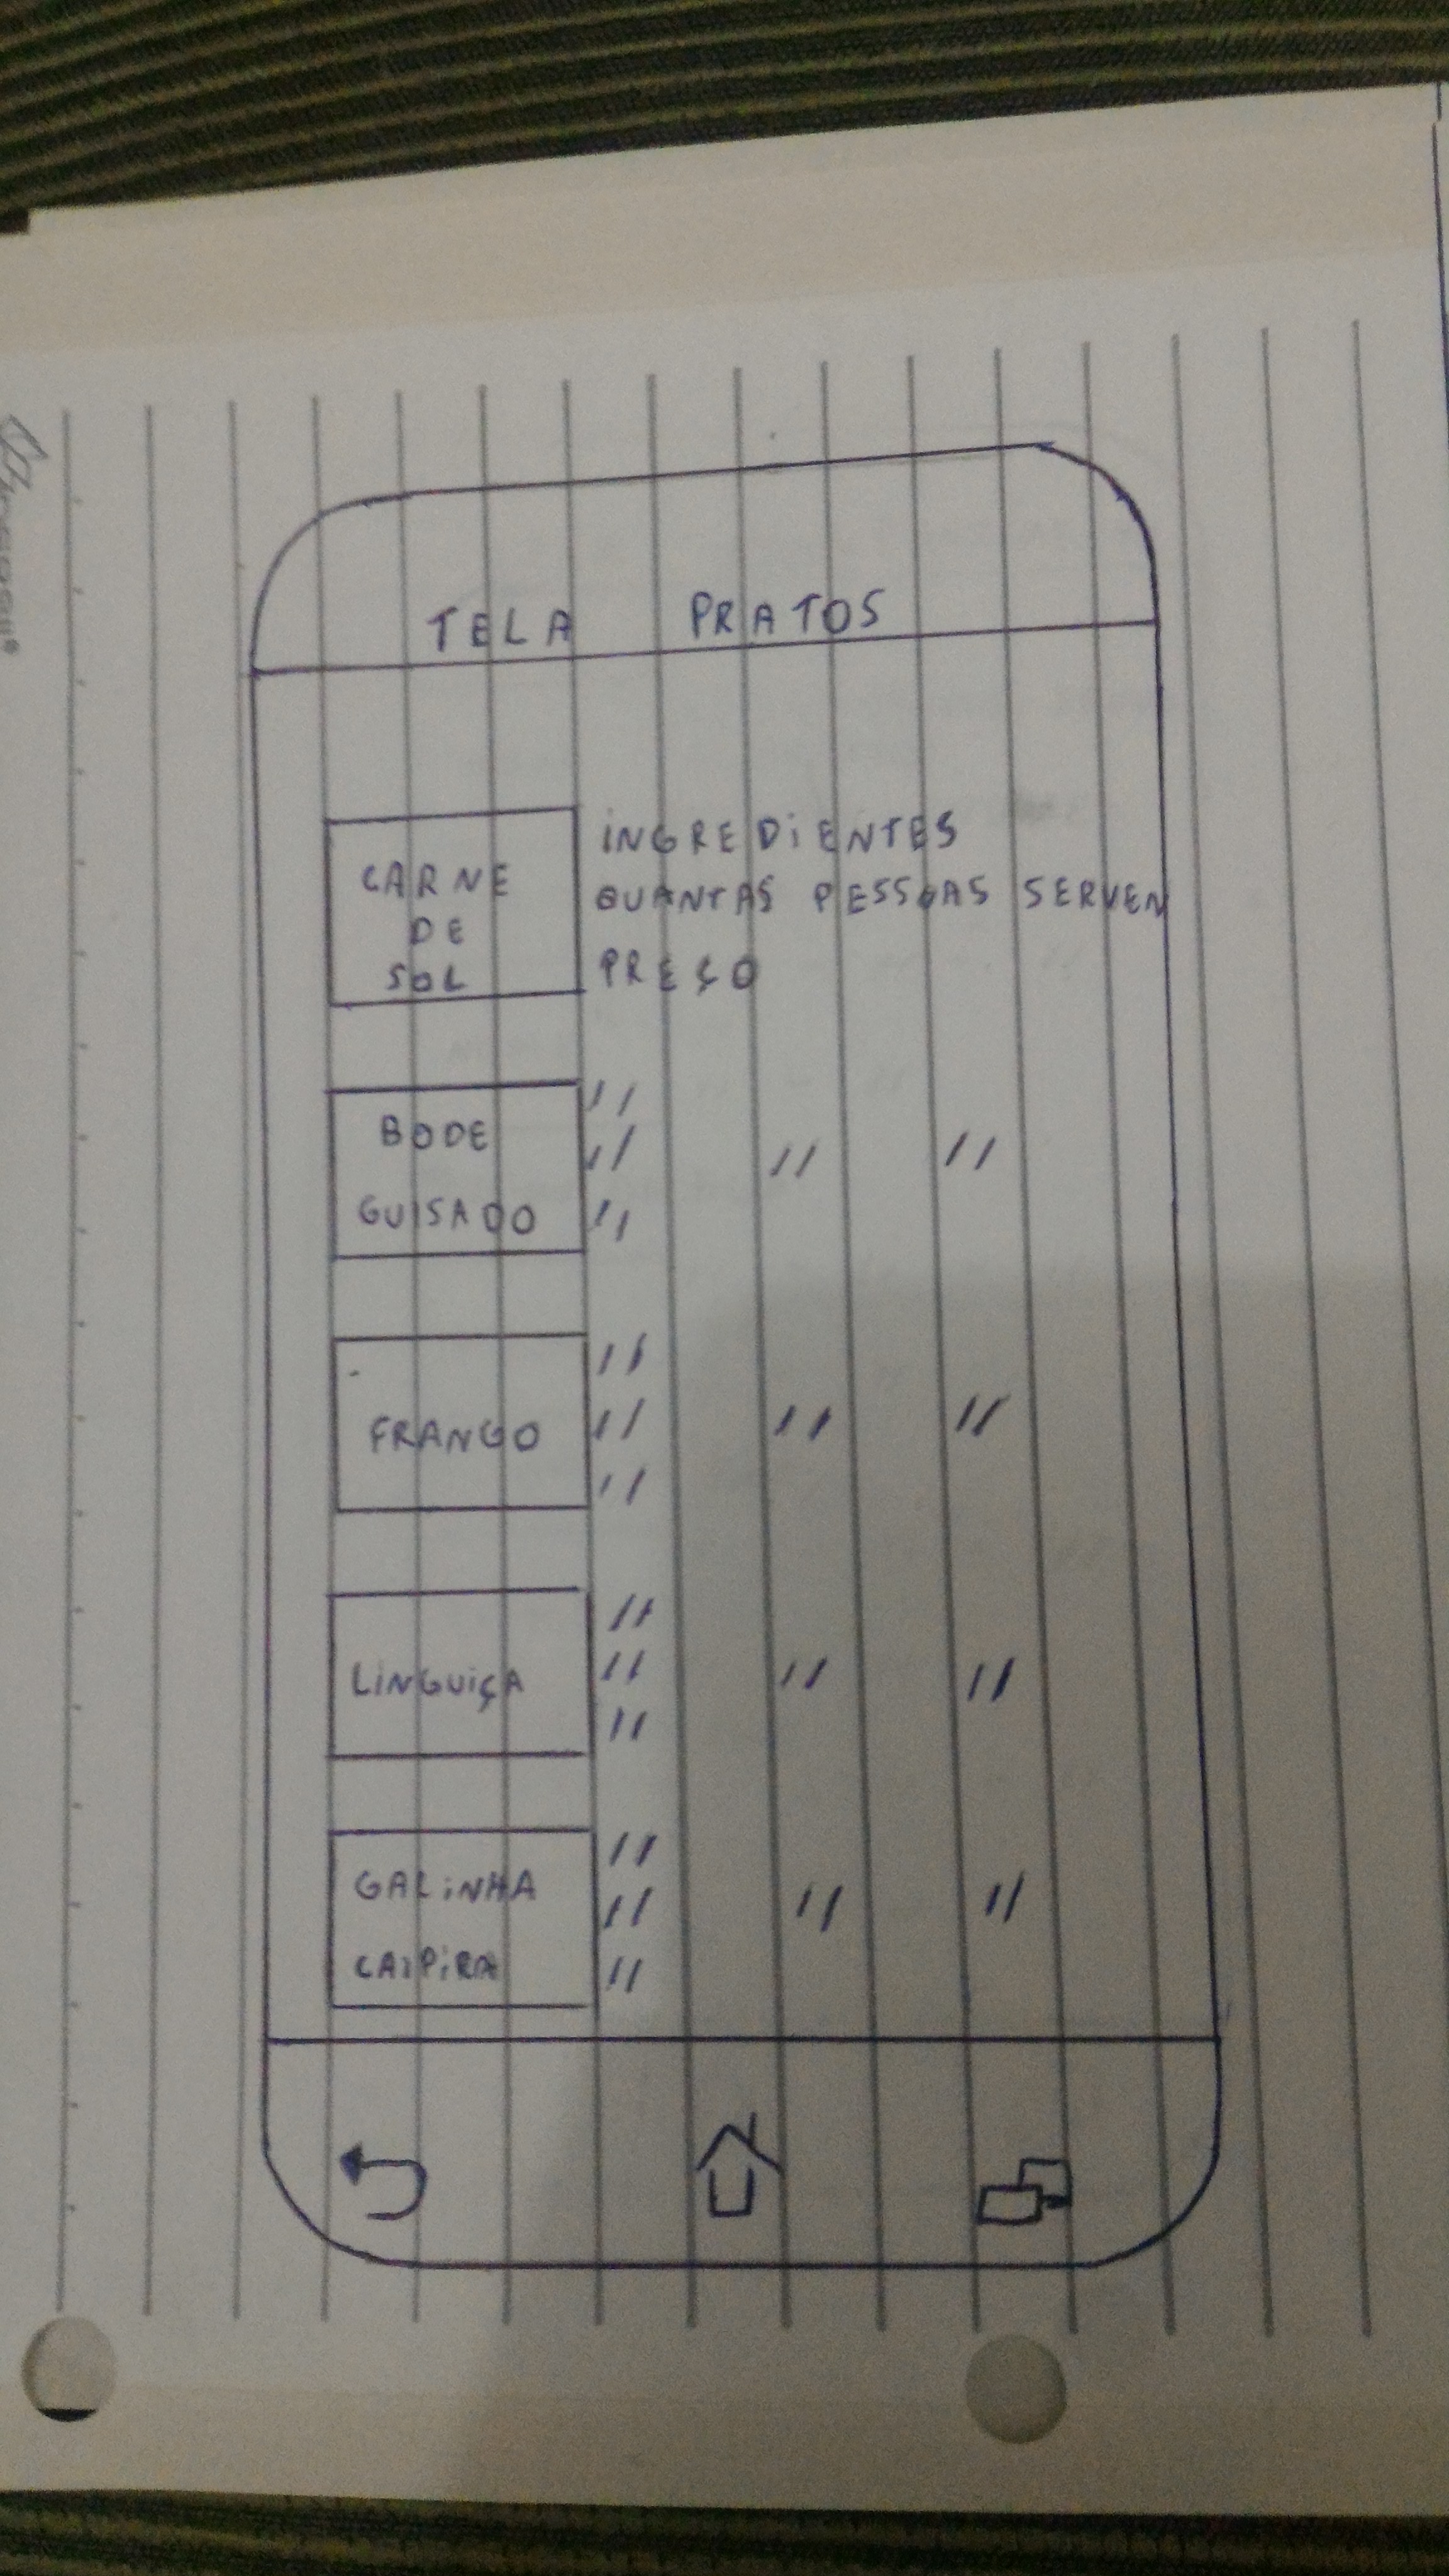 TELA PRATOS
CARNE
DE
SOL
INGREDIENTES
QUANTAS PESSOAS SERVEM
PREÇO
BODE
GUISADO
//
// // //
//
FRANGO
//
// // //
//
LINGUIÇA
//
// // //
//
GALINHA
CAIPIRA
//
// // //
//